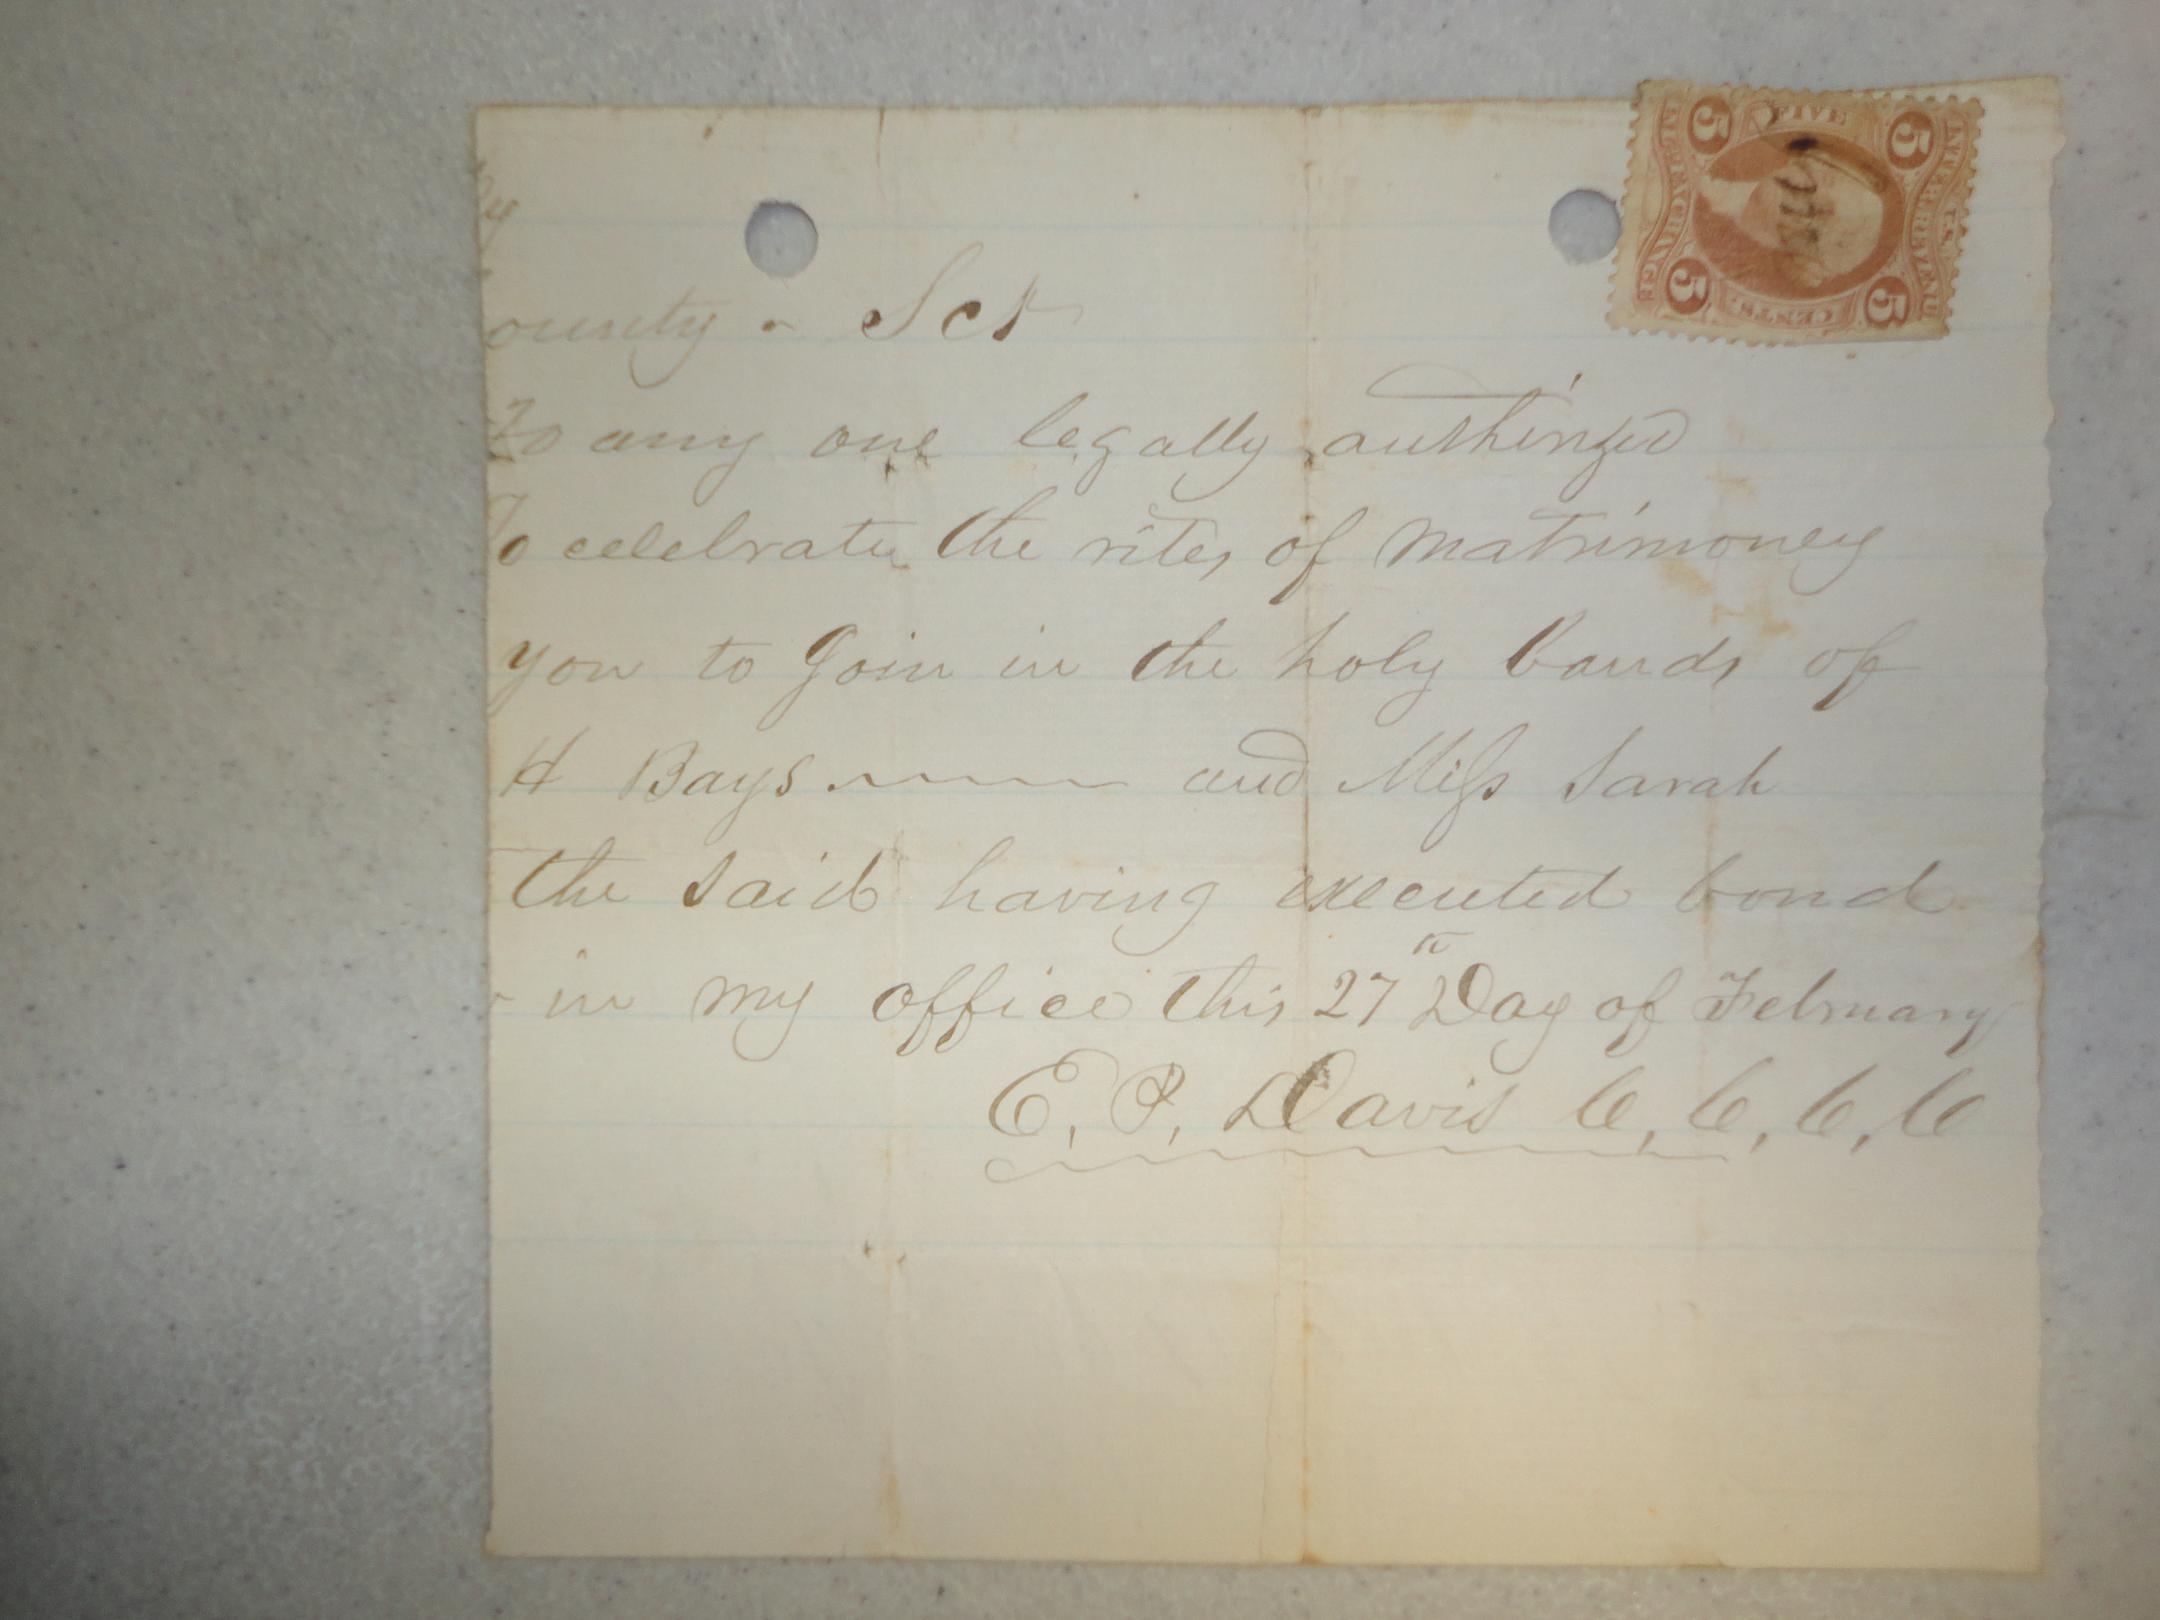 y
ounty - Sct
To any one legally authirized
To celebrate the rites of matrimoney
you to Join in the holy bands of
H Bays and Miss Sarah
the said having executed bond
in my office this 27th Day of February
E. P. Davis C, C, C, C
FIVE
5 5 5 5
INTER. REVENUE
U.S.
INL. EXCHANGE
CENTS.